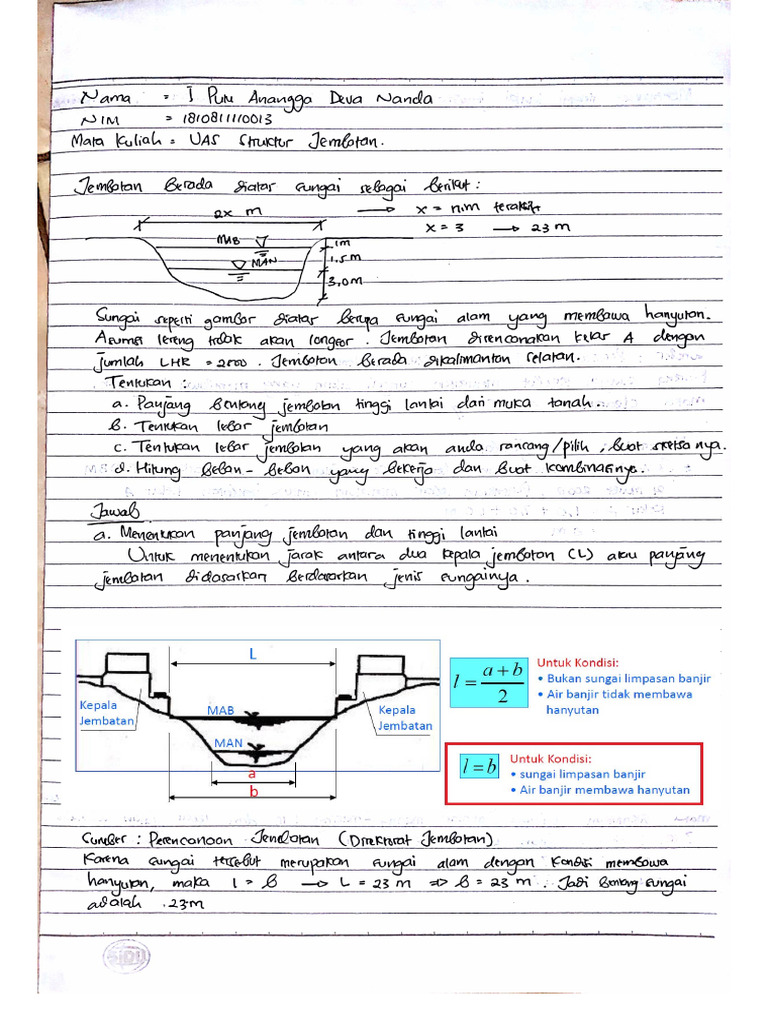 Nama = I Putu Anangga Deva Nanda
NIM = 1810811110013
Mata Kuliah = UAS Struktur Jembatan.
Jembatan Berada diatas sungai sebagai berikut :
2x m → x = nim terakhir
x = 3 → 23 m
MAB
1m
MAN
1,5m
3,0m
Sungai seperti gambar diatas berupa sungai alam yang membawa hanyutan.
Asumsi lereng tidak akan longsor. Jembatan direncanakan kelas A dengan
jumlah LHR = 2500. Jembatan berada dikalimantan selatan.
Tentukan :
a. Panjang bentang jembatan tinggi lantai dari muka tanah.
b. Tentukan lebar jembatan
c. Tentukan lebar jembatan yang akan anda rancang/pilih, buat sketsanya.
d. Hitung beban-beban yang bekerja dan buat kombinasinya.
Jawab
a. Menentukan panjang jembatan dan tinggi lantai
Untuk menentukan jarak antara dua kepala jembatan (L) atau panjang
jembatan didasarkan berdasarkan jenis sungainya.
L
Kepala Jembatan
MAB
MAN
Kepala Jembatan
a
b
l = a + b / 2
Untuk Kondisi:
• Bukan sungai limpasan banjir
• Air banjir tidak membawa
hanyutan
l = b
Untuk Kondisi:
• sungai limpasan banjir
• Air banjir membawa hanyutan
Sumber : Perencanaan Jembatan (Direktorat Jembatan)
Karena sungai tersebut merupakan sungai alam dengan kondisi membawa
hanyutan, maka l = b → L = 23 m ⇒ b = 23 m. Jadi bentang sungai
adalah 23m
SIDU